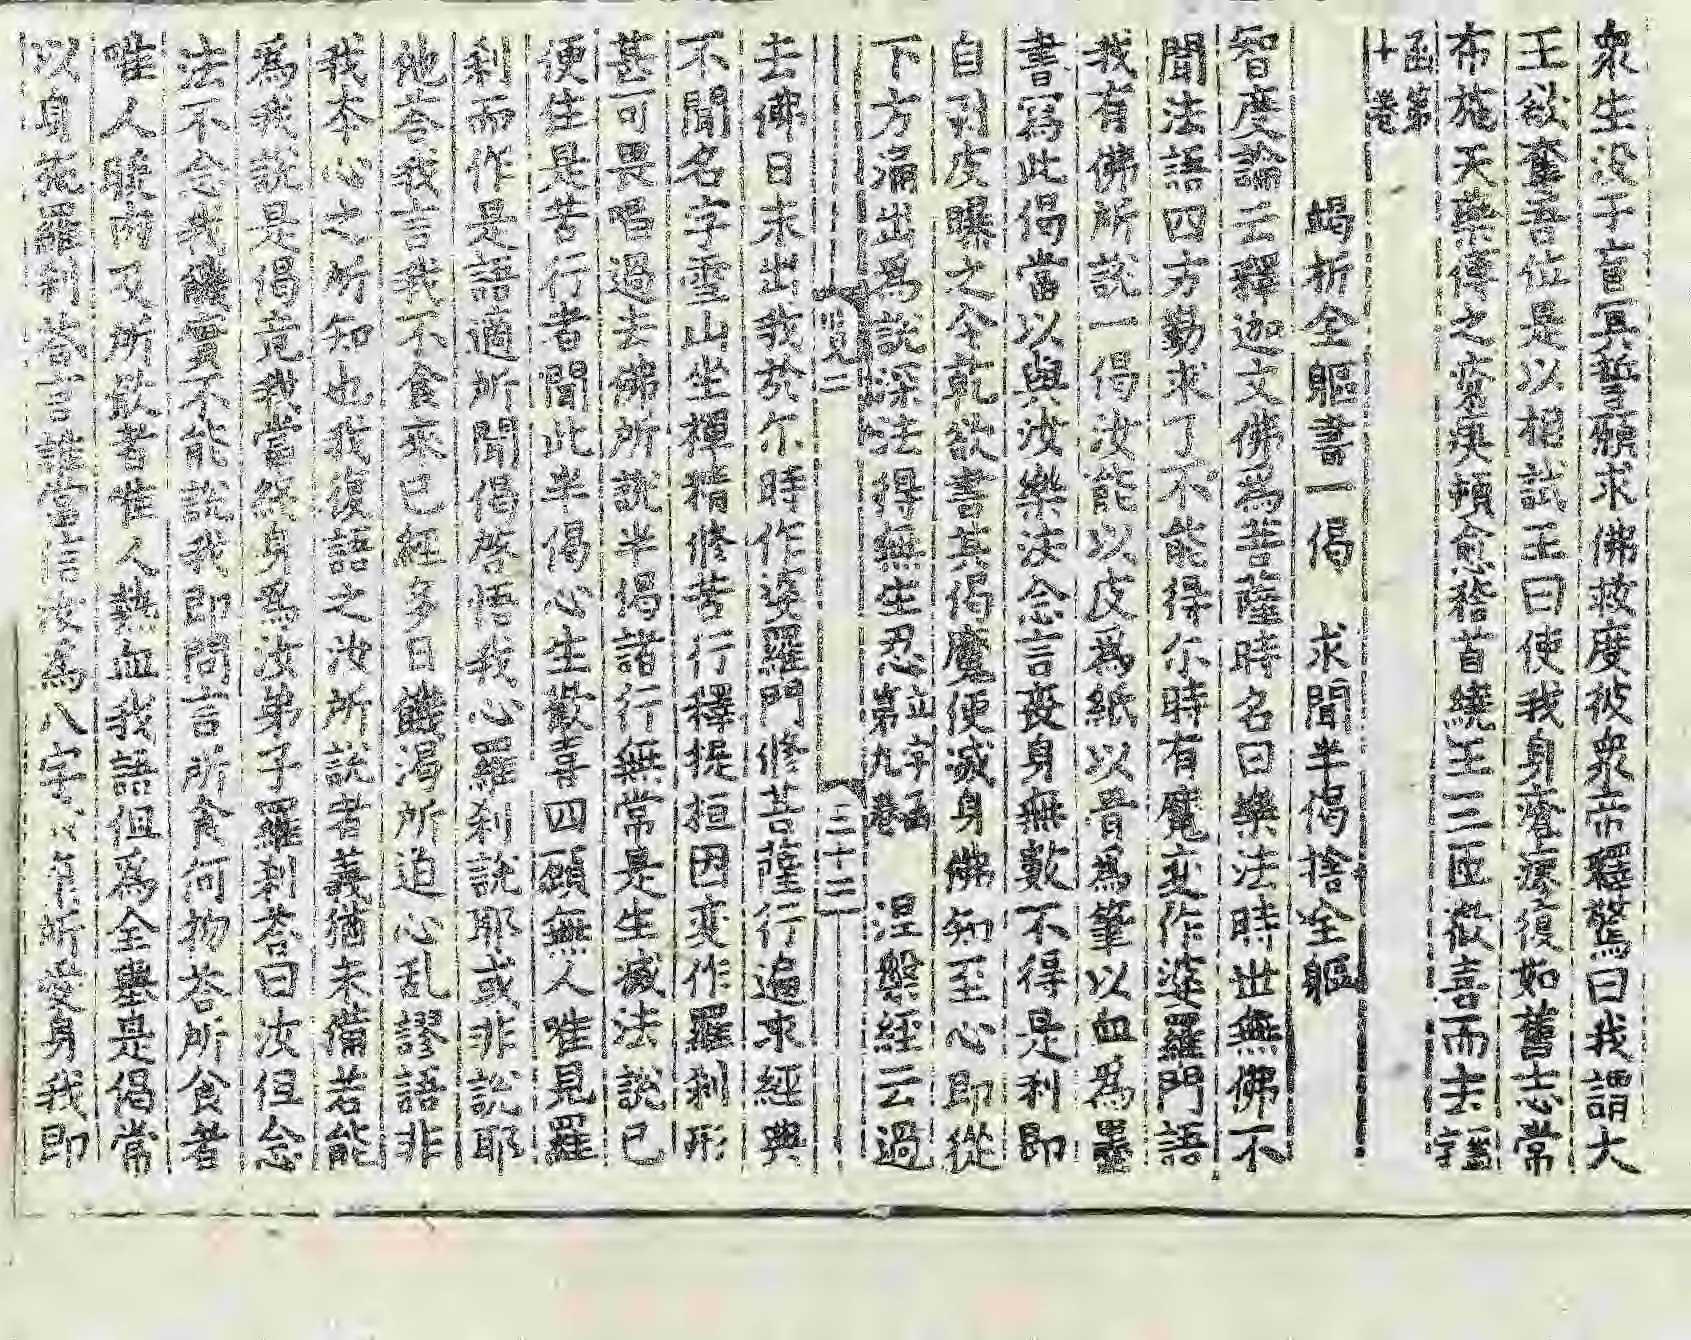 衆生没于盲冥誓願求佛救度彼衆帝釋驚曰我謂大
王欲奪吾位是以相試王曰使我身瘡瘳復如舊志常
布施天藥傅之瘡痍頓愈稽首繞王三匝歡喜而去
函第十卷
竭析全軀書一偈　求聞半偈捨全軀
智度論云釋迦文佛爲菩薩時名曰樂法時世無佛不
聞法語四方勤求了不能得尒時有魔变作婆羅門語
我有佛所說一偈汝能以皮爲紙以骨爲筆以血爲墨
書寫此偈當以與汝樂法念言喪身無數不得是利即
自剥皮曝之令乾欲書其偈魔便滅身佛知至心即從
下方涌出爲說深法得無生忍第九卷　涅槃經云過
三十三
去佛日未出我於尒時作婆羅門修菩薩行遍求經典
不聞名字雪山坐禪精修苦行釋提桓因变作羅刹形
甚可畏唱過去佛所說半偈諸行無常是生滅法說已
便住是苦行者聞此半偈心生歡喜四顧無人唯見羅
刹而作是語適所聞偈啓悟我心羅刹說耶或非說耶
他荅我言我不食來已經多日饑渴所迫心乱謬語非
我本心之所知也我復語之汝所說者義猶未備若能
爲我說是偈竟我當終身爲汝弟子羅刹荅曰汝但念
法不念我饑實不能說我即問言所食何物荅所食者
唯人暖肉又所飲者惟人熱血我語但爲全與是偈常
以身施羅刹荅言誰當信汝爲八字所愛身我即